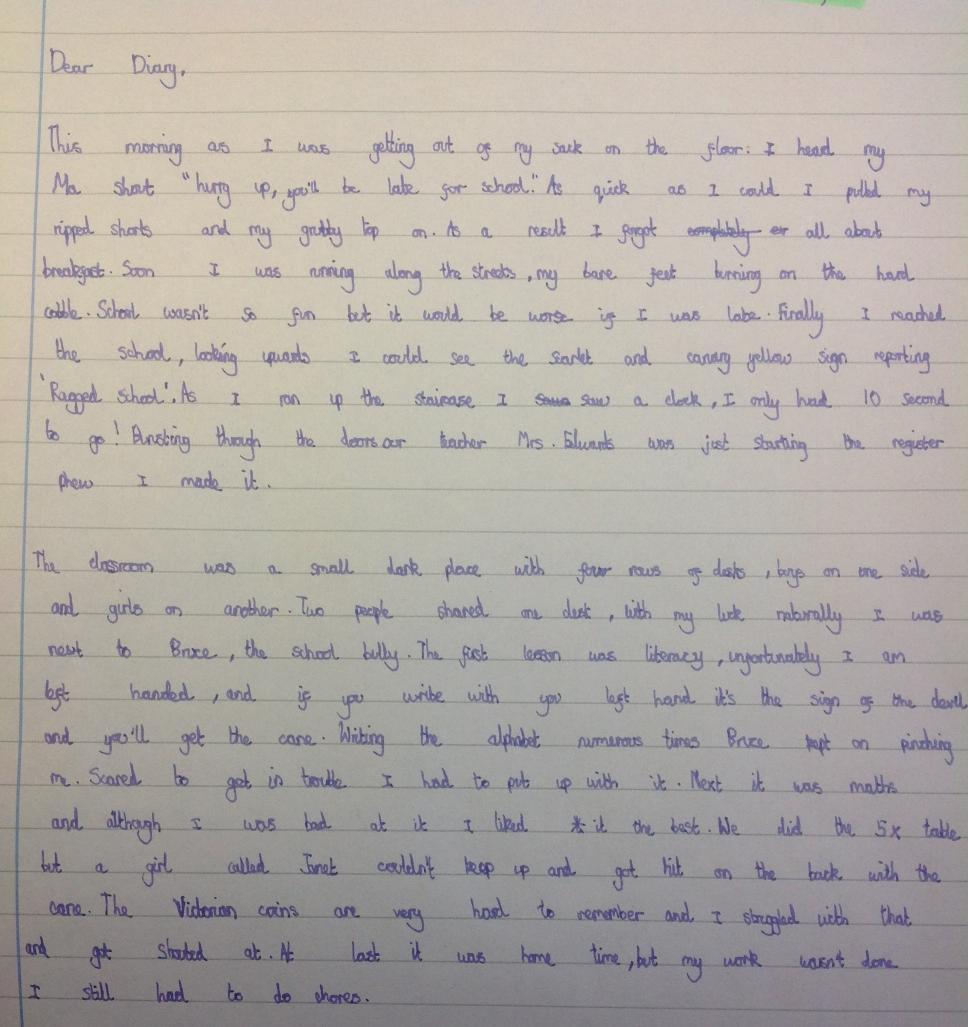 Dear Diary,
This morning as I was getting out of my sack on the floor: I head my
Ma shout "hurry up, you'll be late for school." As quick as I could I pulled my
ripped shorts and my grubby top on. As a result I forgot completely er all about
breakfast. Soon I was running along the streets, my bare feet burning on the hard
cobble. School wasn't so fun but it would be worse if I was late. Finally I reached
the school, looking upwards I could see the scarlet and canary yellow sign reporting
'Ragged school'. As I ran up the staircase I saw a clock, I only had 10 second
to go! Bursting through the doors our teacher Mrs. Edwards was just starting the register
phew I made it.
The classroom was a small dark place with four rows of desks, boys on one side
and girls on another. Two people shared one desk, with my luck naturally I was
next to Bruce, the school bully. The first lesson was literacy, unfortunately I am
left handed, and if you write with you left hand it's the sign of the devil
and you'll get the cane. Writing the alphabet numerous times Bruce kept on pinching
me. Scared to get in trouble I had to put up with it. Next it was maths
and although I was bad at it I liked it the best. We did the 5x table
but a girl called Janet couldn't keep up and got hit on the back with the
cane. The Victorian coins are very hard to remember and I struggled with that
and got shouted at. At last it was home time, but my work wasn't done
I still had to do chores.